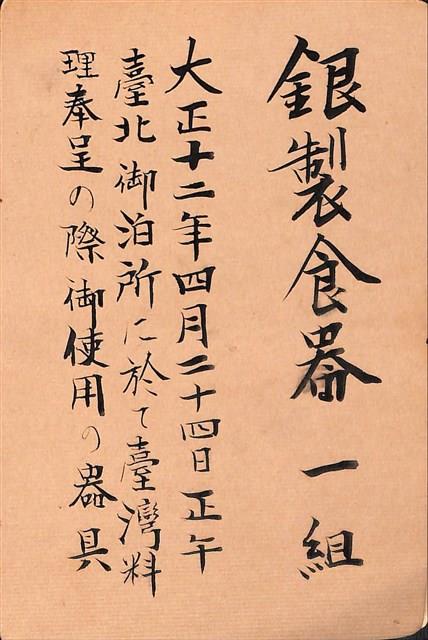 銀製食器 一組
大正十二年四月二十四日正午
臺北御泊所に於て臺灣料
理奉呈の際御使用の器具